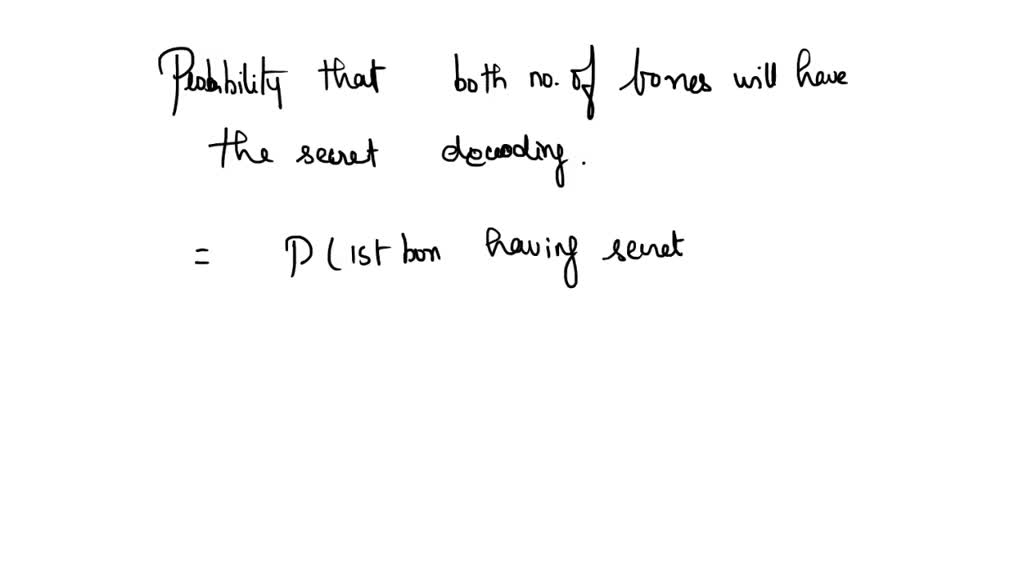 Probability that both no. of bones will have
the secret decoding.
= P ( 1st bon having secret